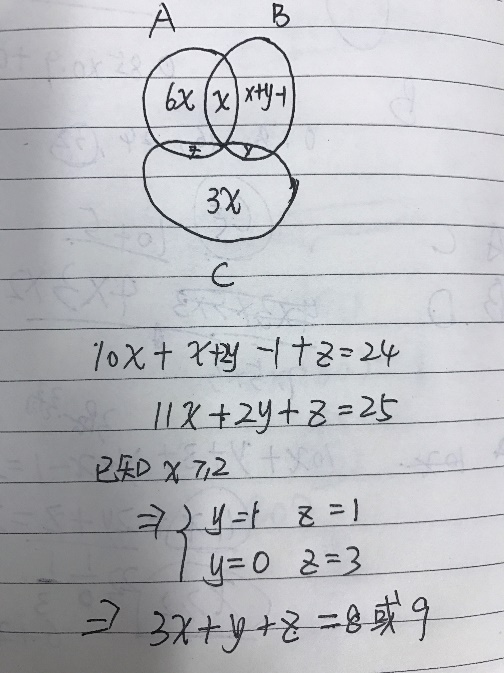 A B
6x x x+y-1
z y
3x
C
10x + x+2y -1 + z = 24
11x + 2y + z = 25
已知 x ≥ 2
⇒ { y=1 z=1
y=0 z=3
⇒ 3x+y+z = 8 或 9